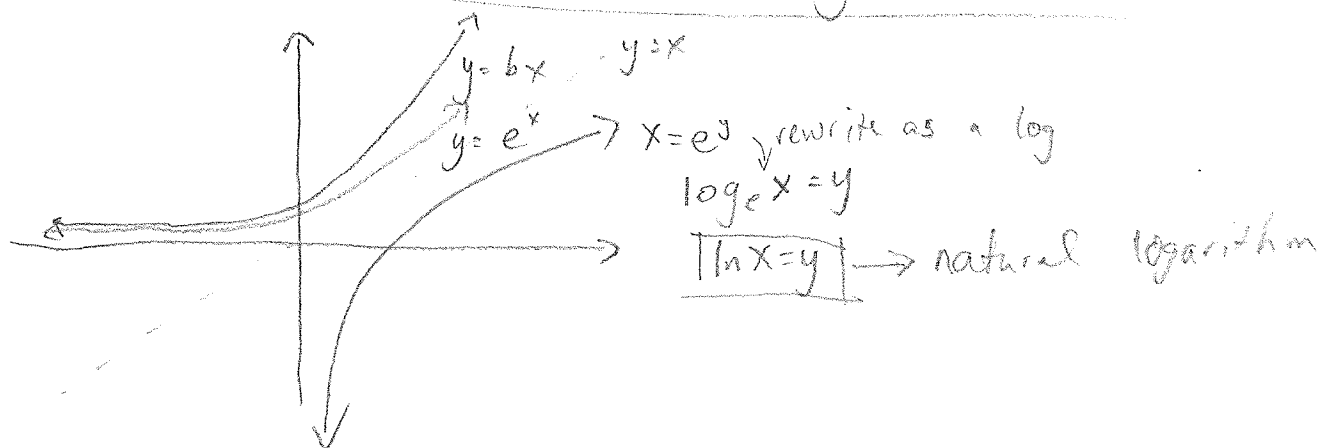 y = bx
y = x
y = e^x
x = e^y rewrite as a log
log_e x = y
ln x = y → natural logarithm